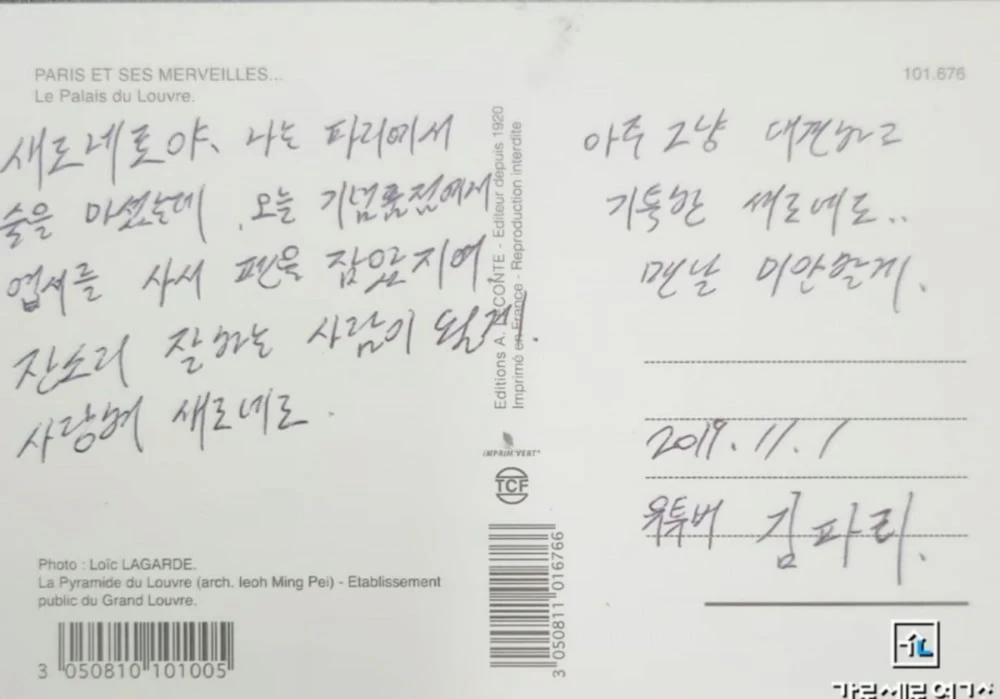 PARIS ET SES MERVEILLES...
Le Palais du Louvre.
101.676
새로네로야. 나는 파리에서
술을 마셨는데 . 오늘 기념품점에서
엽서를 사서 펜을 잡았지여
잔소리 잘하는 사람이 될게!.
사랑해 새로네로.
Editions A. LECONTE - Editeur depuis 1920
Imprimé en France - Reproduction interdite
IMPRIM'VERT®
TCF
3 050811 016766
아주 그냥 대견하고
기특한 새로네로..
맨날 미안할게.
2019. 11. 1
유투버 김파리.
Photo : Loïc LAGARDE.
La Pyramide du Louvre (arch. Ieoh Ming Pei) - Etablissement
public du Grand Louvre.
3 050810 101005
가로세로연구소